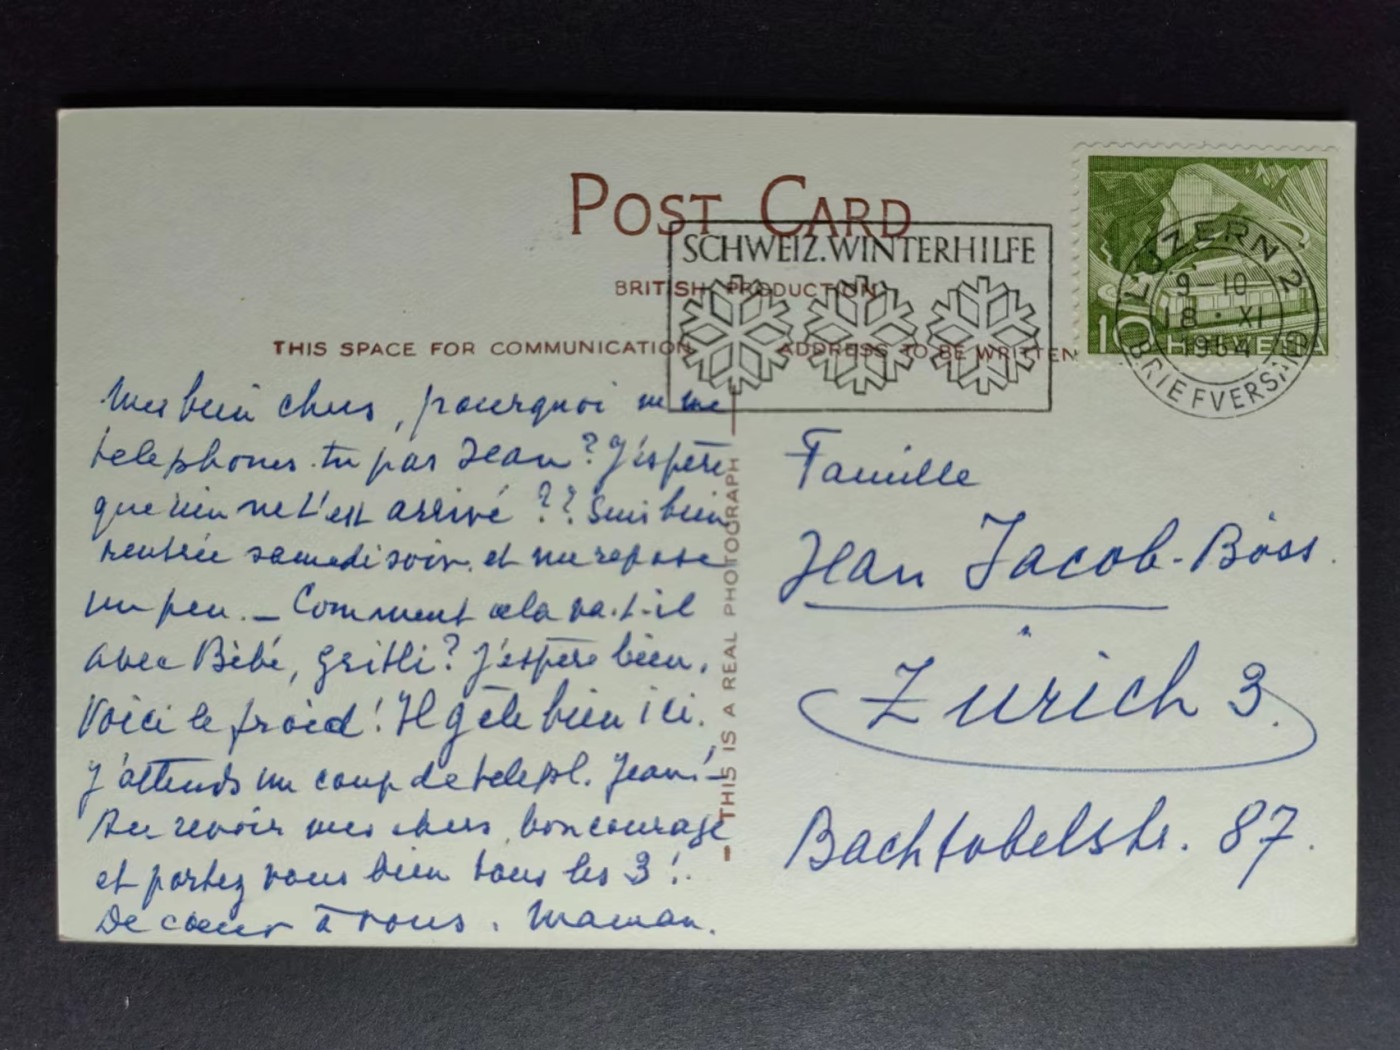 POST CARD
SCHWEIZ. WINTERHILFE
BRITISH PRODUCTION
THIS SPACE FOR COMMUNICATION
ADDRESS TO BE WRITTEN
LUZERN 2
9-10
18. XI
1954
BRIEFVERSAND
10 HELVETIA
Mes bien chers, pourquoi ne me
telephones-tu pas Jean? J'espère
que rien ne t'est arrivé ?? Suis bien
rentrée samedi soir et me repose
un peu. _ Comment cela va-t-il
avec Bébé, Gritli? J'espère bien.
Voici le froid! Il gèle bien ici.
J'attends un coup de teleph. Jean!-
Au revoir mes chers, bon courage
et portez vous bien tous les 3!
De cœur à vous. Maman.
- THIS IS A REAL PHOTOGRAPH
Famille
Jean Jacob-Böss.
Zürich 3.
Bachtobelstr. 87.